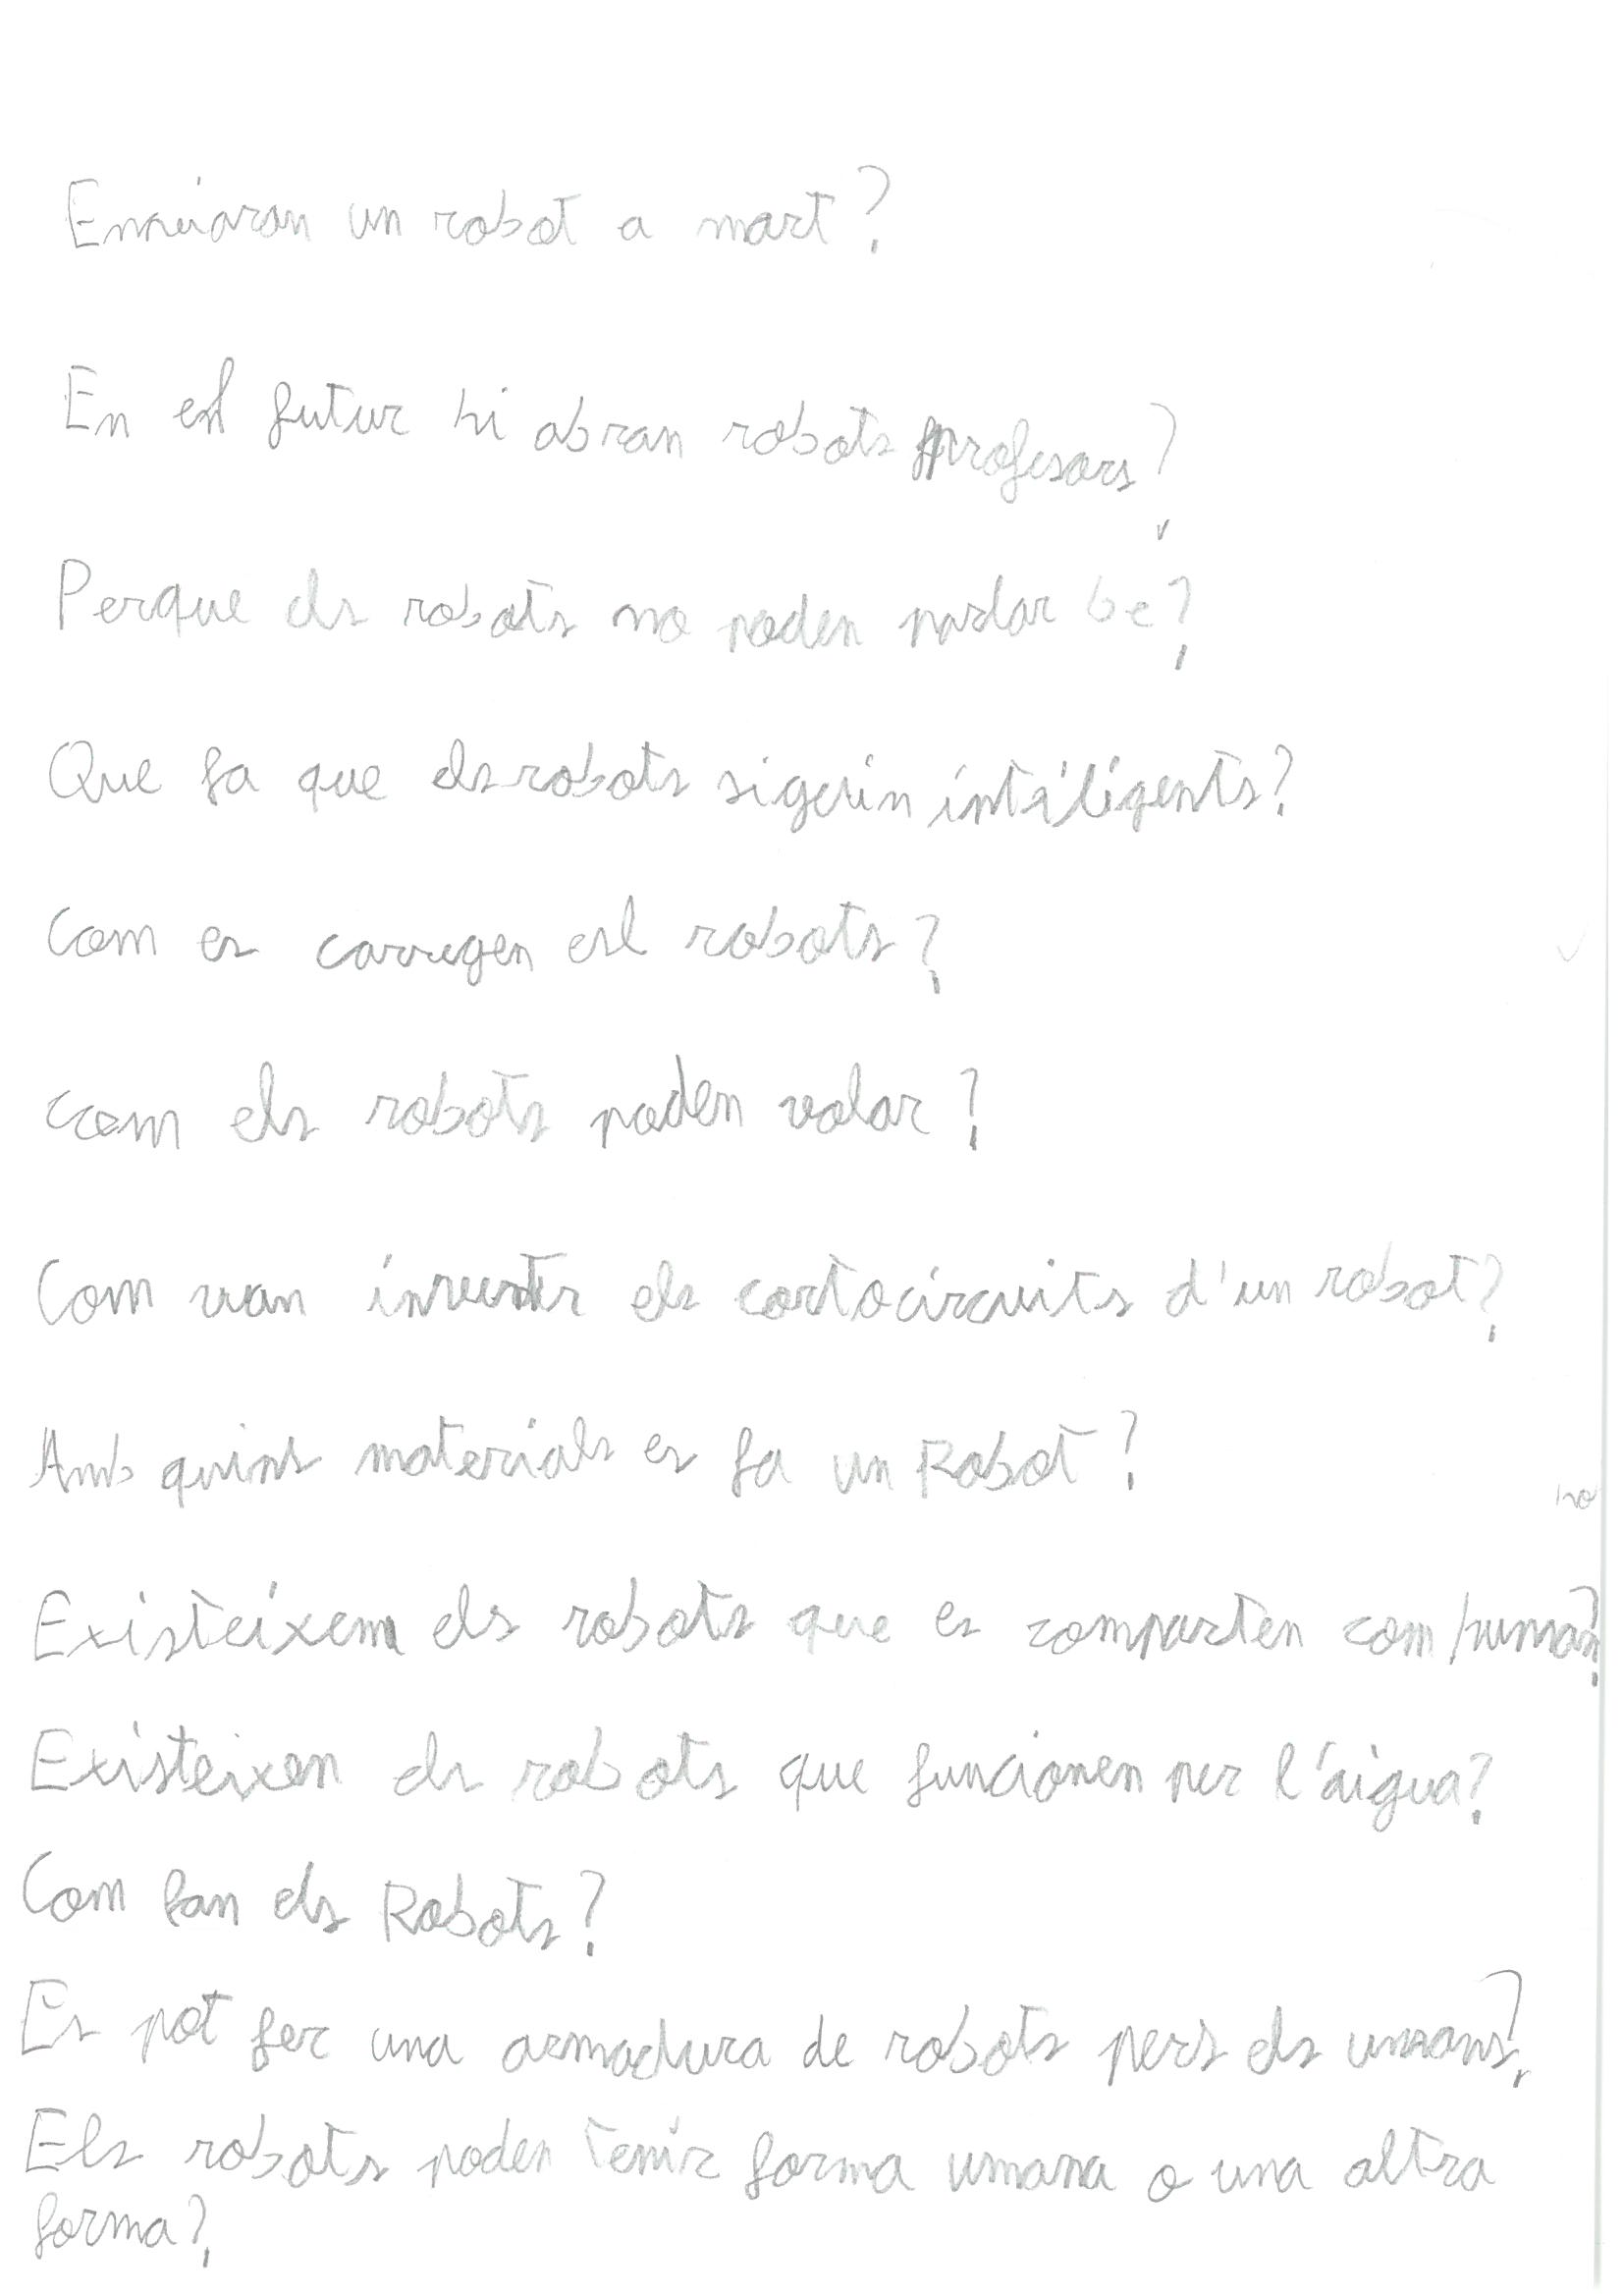 Enviaran un robot a mart?
En el futur hi abran robots profesors?
Perque els robots no poden parlar be?
Que fa que els robots siguin intiligents?
Com es carregen esl robots?
com els robots poden volar?
Com van inventar els cortocircuits d'un robot?
Amb quins materials es fa un Robot?
no
Existeixem els robots que es comparten com humans?
Existeixen els robots que funcionen per l'áigua?
Com fan els Robots?
Es pot fer una armadura de robots pers els umans?
Els robots poden tenir forma umana o una altra
forma?